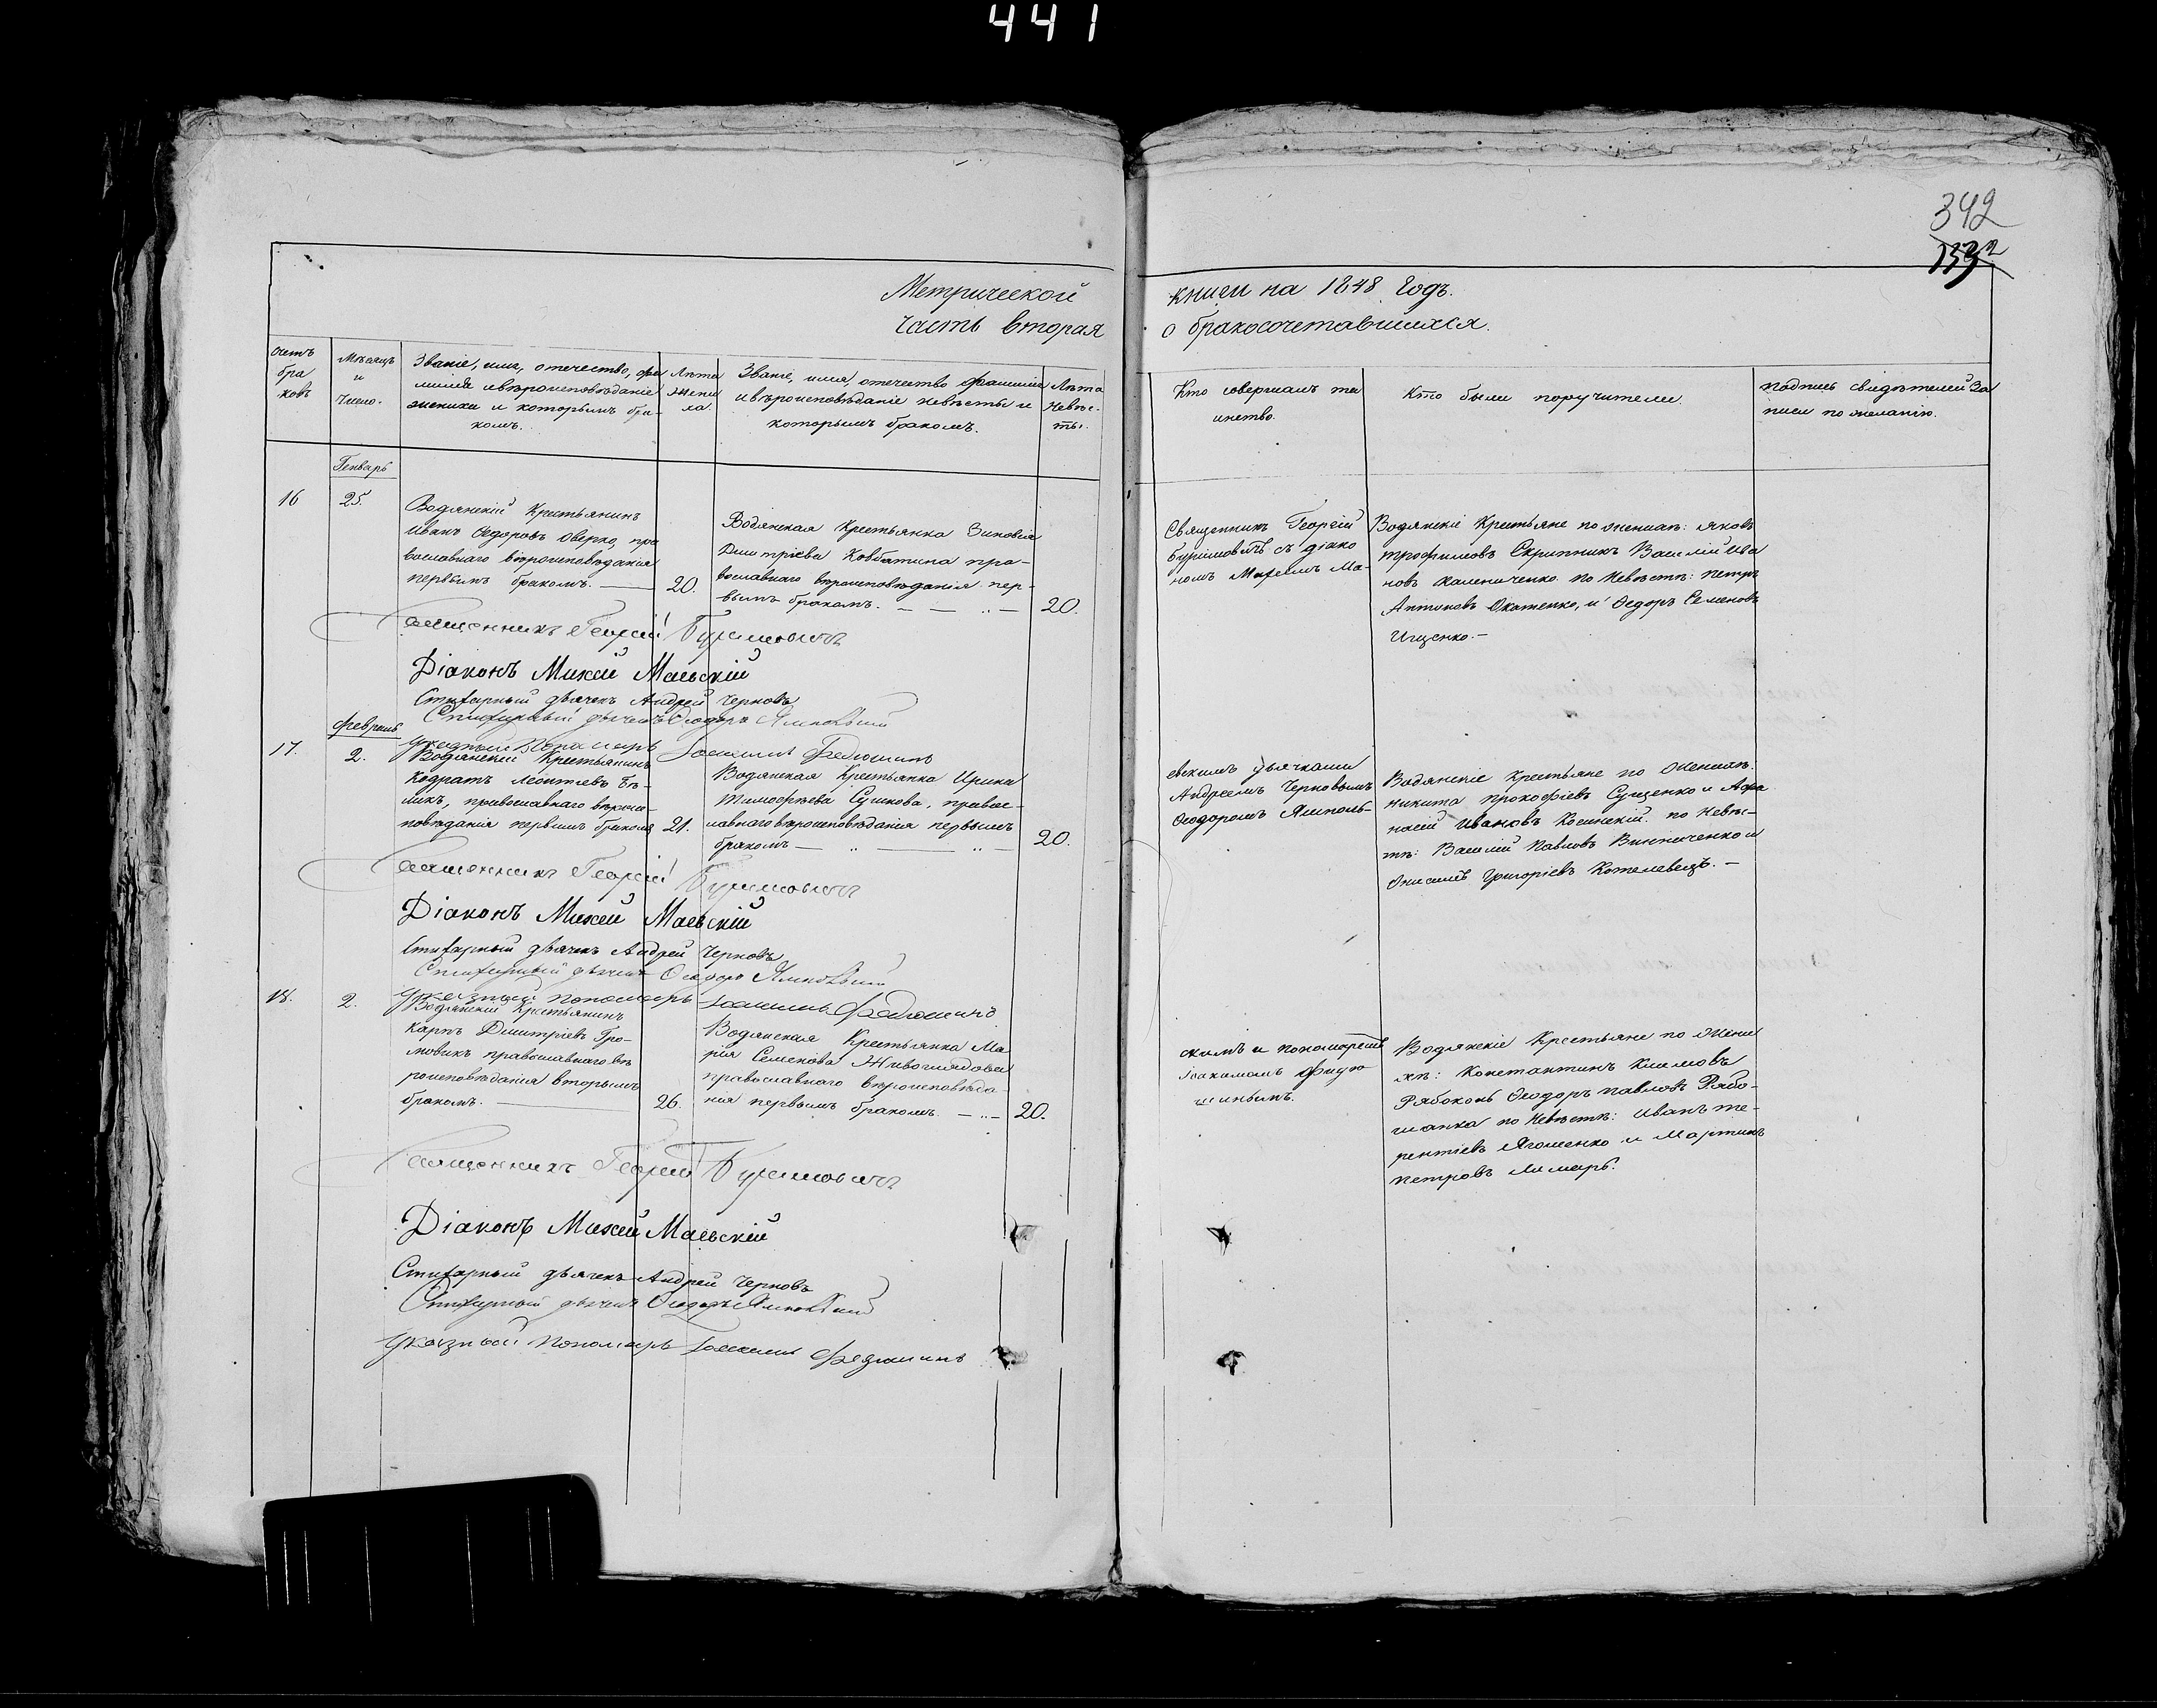 441
342
1392
Метрической
часть вторая
книги на 1848 годъ.
о бракосочетавшихся.
Счетъ
бра
ковъ
Мѣсяцъ
и
число.
Званіе, имя, отечество, фа
милія и вѣроисповѣданіе
жениха и которымъ бра-
комъ.
Лѣта
Жени
ха.
Званіе, имя, отечество фамилія
и вѣроисповѣданіе невѣсты и
которымъ бракомъ.
Лѣта
Невѣс-
ты.
Кто совершалъ та
инство.
Кто были поручители.
Подпись свидѣтелей за
писи по желанію.
Генварь
16
25.
Водянскій Крестьянинъ
Иванъ Ѳедоровъ Оверко, пра
вославнаго вѣроисповѣданія
первымъ бракомъ.
20.
Водянская Крестьянка Зиновія
Дмитріева Ковбатина пра-
вославнаго вѣроисповѣданія пер-
вымъ бракомъ.
20.
Священникъ Георгій
Буримовичъ съ діако
номъ Михеемъ Ма-
Водянскіе Крестьяне по женихѣ: Яковъ
Трофимовъ Скрипникъ Василій Ива
новъ Калениченко по Невѣстѣ: Петръ
Антоновъ Окатенко, и Ѳедоръ Семеновъ
Ищенко.
Священникъ Георгій Буримовичъ
Діаконъ Михей Маевскій
Стихарный дьячекъ Андрей Черновъ
Стихарный дьячекъ Ѳеодоръ Ямпольскій
Указный Пономарь Іоакимъ Федюшинъ
Февраль
17.
2.
Водянскій Крестьянинъ
Кодратъ Леонтіевъ Бѣ-
ликъ, православнаго вѣроис-
повѣданія первымъ бракомъ
21.
Водянская Крестьянка Ирина
Тимофѣева Сушкова, правос-
лавнаго вѣроисповѣданія первымъ
бракомъ
20.
евскимъ дьячками
Андреемъ Черновымъ
Ѳеодоромъ Ямполь-
Водянскіе Крестьяне по Женихѣ.
Никита Прокофіевъ Сущенко и Афа
насій Ивановъ Косинскій. по Невѣс-
тѣ: Василій Павловъ Винниченко и
Онисимъ Григоріевъ Котелевецъ.
Священникъ Георгій Буримовичъ
Діаконъ Михей Маевскій
Стихарный дьячекъ Андрей Черновъ
Стихарный дьячекъ Ѳеодоръ Ямпольскій
Указный пономарь Іоакимъ Федюшинъ
18.
2.
Водянскій Крестьянинъ
Карпъ Дмитріевъ Гро-
мовикъ православнаго вѣ
роисповѣданія вторымъ
бракомъ.
26.
Водянская Крестьянка Ма
рія Семенова Живоглядова
православнаго вѣроисповѣда
нія первымъ бракомъ.
20.
скимъ и пономаремъ
Іоакимомъ Федю
шинымъ.
Водянскіе Крестьяне по Жени
хѣ: Константинъ Климовъ
Рябоконь Ѳеодоръ Павловъ Рябо-
шапка по Невѣстѣ: Иванъ Те-
рентіевъ Ягошенко и Мартинъ
Петровъ Лимарь.
Священникъ Георгій Буримовичъ
Діаконъ Михей Маевскій
Стихарный дьячекъ Андрей Черновъ
Стихарный дьячекъ Ѳеодоръ Ямпольскій
Указный пономарь Іоакимъ Федюшинъ